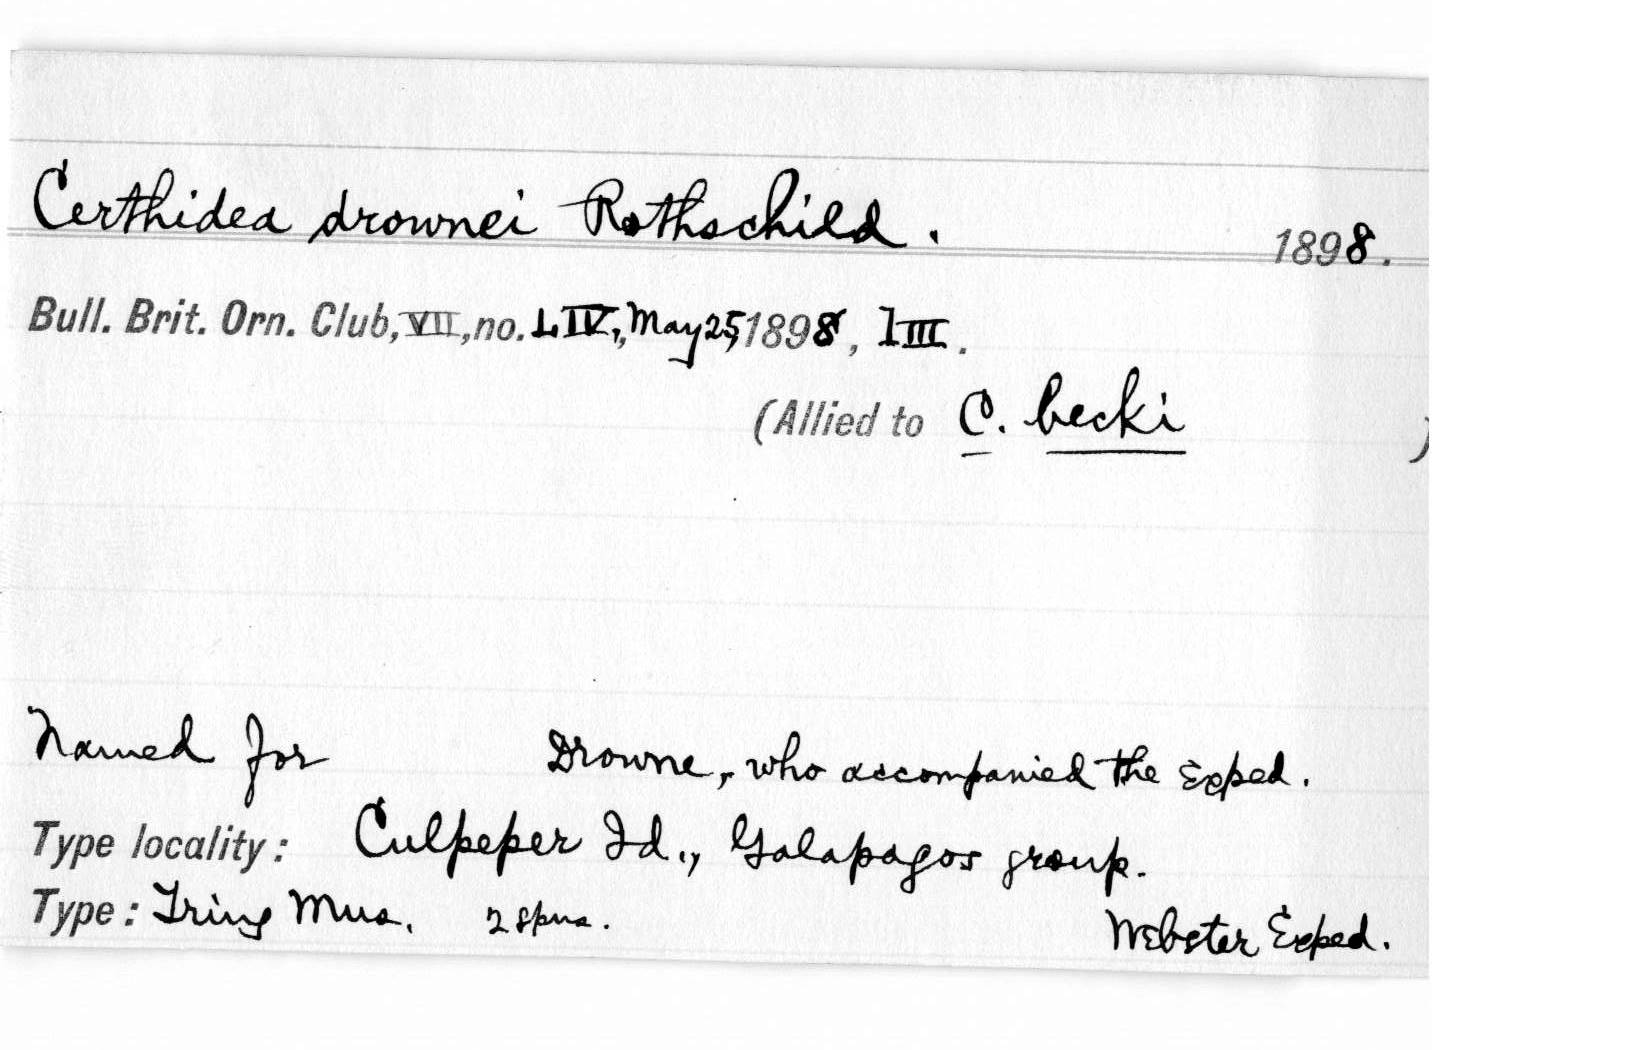 Certhidea drownei Rothschild. 1898.
Bull. Brit. Orn. Club, VII, no. LIV, May 25, 1898, lIII.
(Allied to C. becki )
Named for Drowne, who accompanied the Exped.
Type locality: Culpeper Id., Galapagos group.
Type: Tring Mus. 2 spns. Webster Exped.